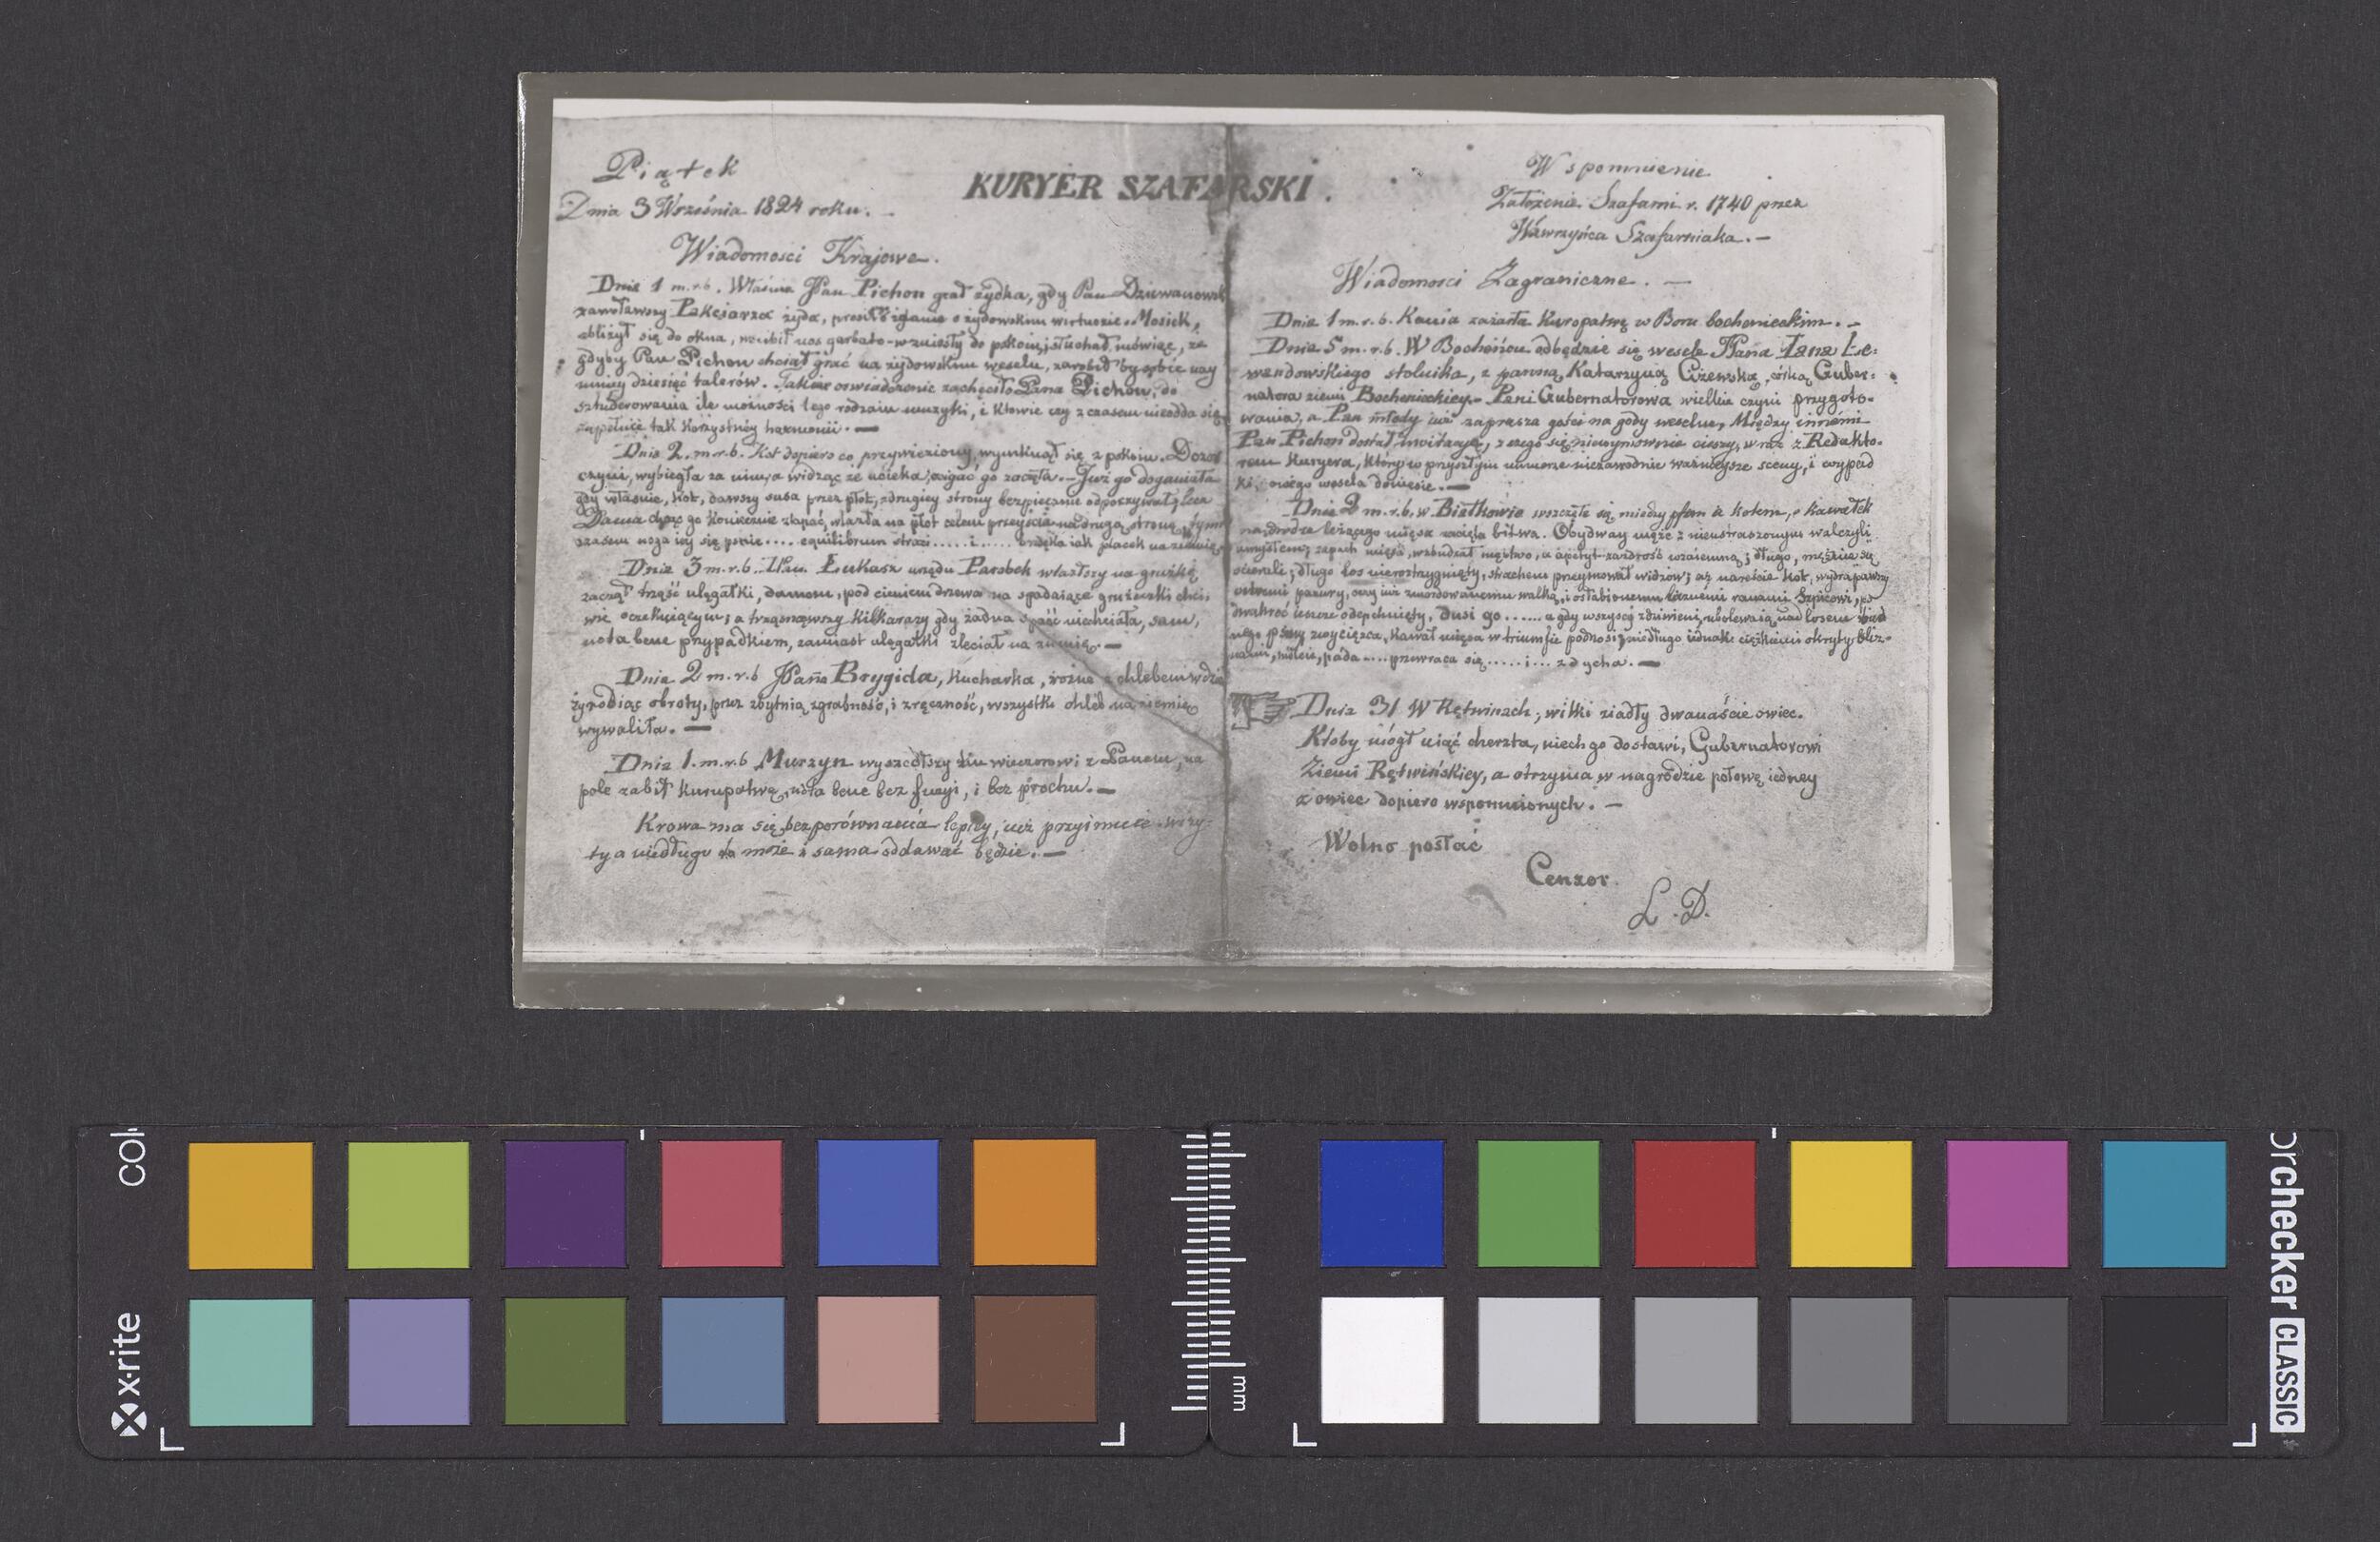 Piątek
Dnia 3 Września 1824 roku.
KURYER SZAFARSKI.
Wspomnienie
Założenie Szafarni r. 1740 przez
Wawrzyńca Szafarniaka. —
Wiadomości Krajowe.
Dnia 1 m. r. b. Właśnie JPan Pichon grał żydka, gdy Pan Dziewanowski
zawoławszy Pakciarza żyda, prosił o zdanie o żydowskim wirtuozie. Mosiek,
zbliżył się do okna, wścibił nos garbato-wzniosły do pokoiu, i słuchał, mówiąc, że
gdyby Pan Pichon chciał grać na żydowskim weselu, zarobił by sobie nay
mniey dziesięć talerów. Takie oswiadczenie zachęciło Pana Pichon, do
sztuderowania ile możności tego rodzaiu muzyki, i ktowie czy z czasem nieodda się
zupełnie tak korzystney harmonii. —
Dnia 2. m. r. b. Kot dopiero co przywieziony, wymknął się z pokoiu.
czyni, wybiegła za nim, a widząc że ucieka, ścigać go zaczęła. — Już go doganiała
gdy właśnie, kot, dawszy susa przez płot, z drugiey strony bezpiecznie odpoczywał, lecz
Dama chcąc go koniecznie złapać, wlazła na płot celem przeyścia na drugą stronę,
czasem noga iey się psnie.... equilibrum straci..... i..... brzękła iak placek na ziemię
Dnia 3 m. r. b. JPan Łukasz urzędu Parobek wlazłszy na gruszkę
zaczął trząść ulęgałki, damom, pod cieniem drzewa na spadaiące gruszeczki chci,
wie oczekuiącym; a trząsnąwszy kilka razy gdy żadna spaść niechciała, sam,
nota bene przypadkiem, zamiast ulęgałki zleciał na ziemię. —
Dnia 2 m. r. b Panna Brygida, kucharka, różne z chlebem w
robiąc obroty, przez zbytnią zgrabność, i zręczność, wszystek chleb na ziemię
wywaliła. —
Dnia 1. m. r. b Murzyn wyszedłszy ku wieczorowi z Panem, na
pole zabił kuropatwę, nota bene bez fuzyi, i bez prochu. —
Krowa ma się bezporównania lepiey, już przyimuie wizy-
ty a niedługo to może i sama oddawać będzie. —
Wiadomości Zagraniczne. —
Dnia 1 m. r. b. Kania zażarła Kuropatwę w Boru bocheneckim. —
Dnia 5 m. r. b. W Bocheńcu odbędzie się wesele JPana Iana Le:
wandowskiego stolnika, z panną Katarzyną Ciżewską, córką Guber:
natora ziemi Bocheneckiey. — Pani Gubernatorowa wielkie czyni przygoto-
wania, a Pan młody iuż zaprasza gości na gody weselne. Między innémi
Pan Pichon dostał inwitacyą, z czego się niewymownie cieszy, wraz z Redakto-
rem Kuryera, który w przyszłym numerze niezawodnie ważnieysze sceny, i wypad
ki, owego wesela doniesie. —
Dnia 2 m. r. b. w Białkowie wszczęła się między psem a kotem, o kawałek
na drodze leżącego mięsa zacięta bitwa. Obydway męże z nieustraszonym walczyli
umysłem; zapach mięsa, wzbudzał męstwo, a apetyt zazdrość wzaiemną; długo, mężnie się
ścierali; długo los nierozstrzygnięty, strachem przeymował widzów; aż nareście kot, wydrapawszy
ostremi pazury, oczy iuż zmordowanemu walką, i osłabionemu licznemi ranami Szpicowi, po
dwakroć ieszcze odepchnięty, dusi go ...... a gdy wszyscy zdziwieni, ubolewaią nad losem bied
nego psiny zwycięzca, kawał mięsa w triumfie podnosi; niedługo iednak ciężkiemi okryty bliz-
nami, mdleie, pada .... przewraca się ..... i ... zdycha. —
Dnia 31 W Rętwinach, wilki ziadły dwanaście owiec.
Ktoby mógł uiąć cherszta, niech go dostawi, Gubernatorowi
Ziemi Rętwińskiey, a otrzyma w nagrodzie połowę iedney
z owiec dopiero wspomnionych. —
Wolno posłać
Cenzor.
L. D.
x·rite
mm
colorchecker CLASSIC